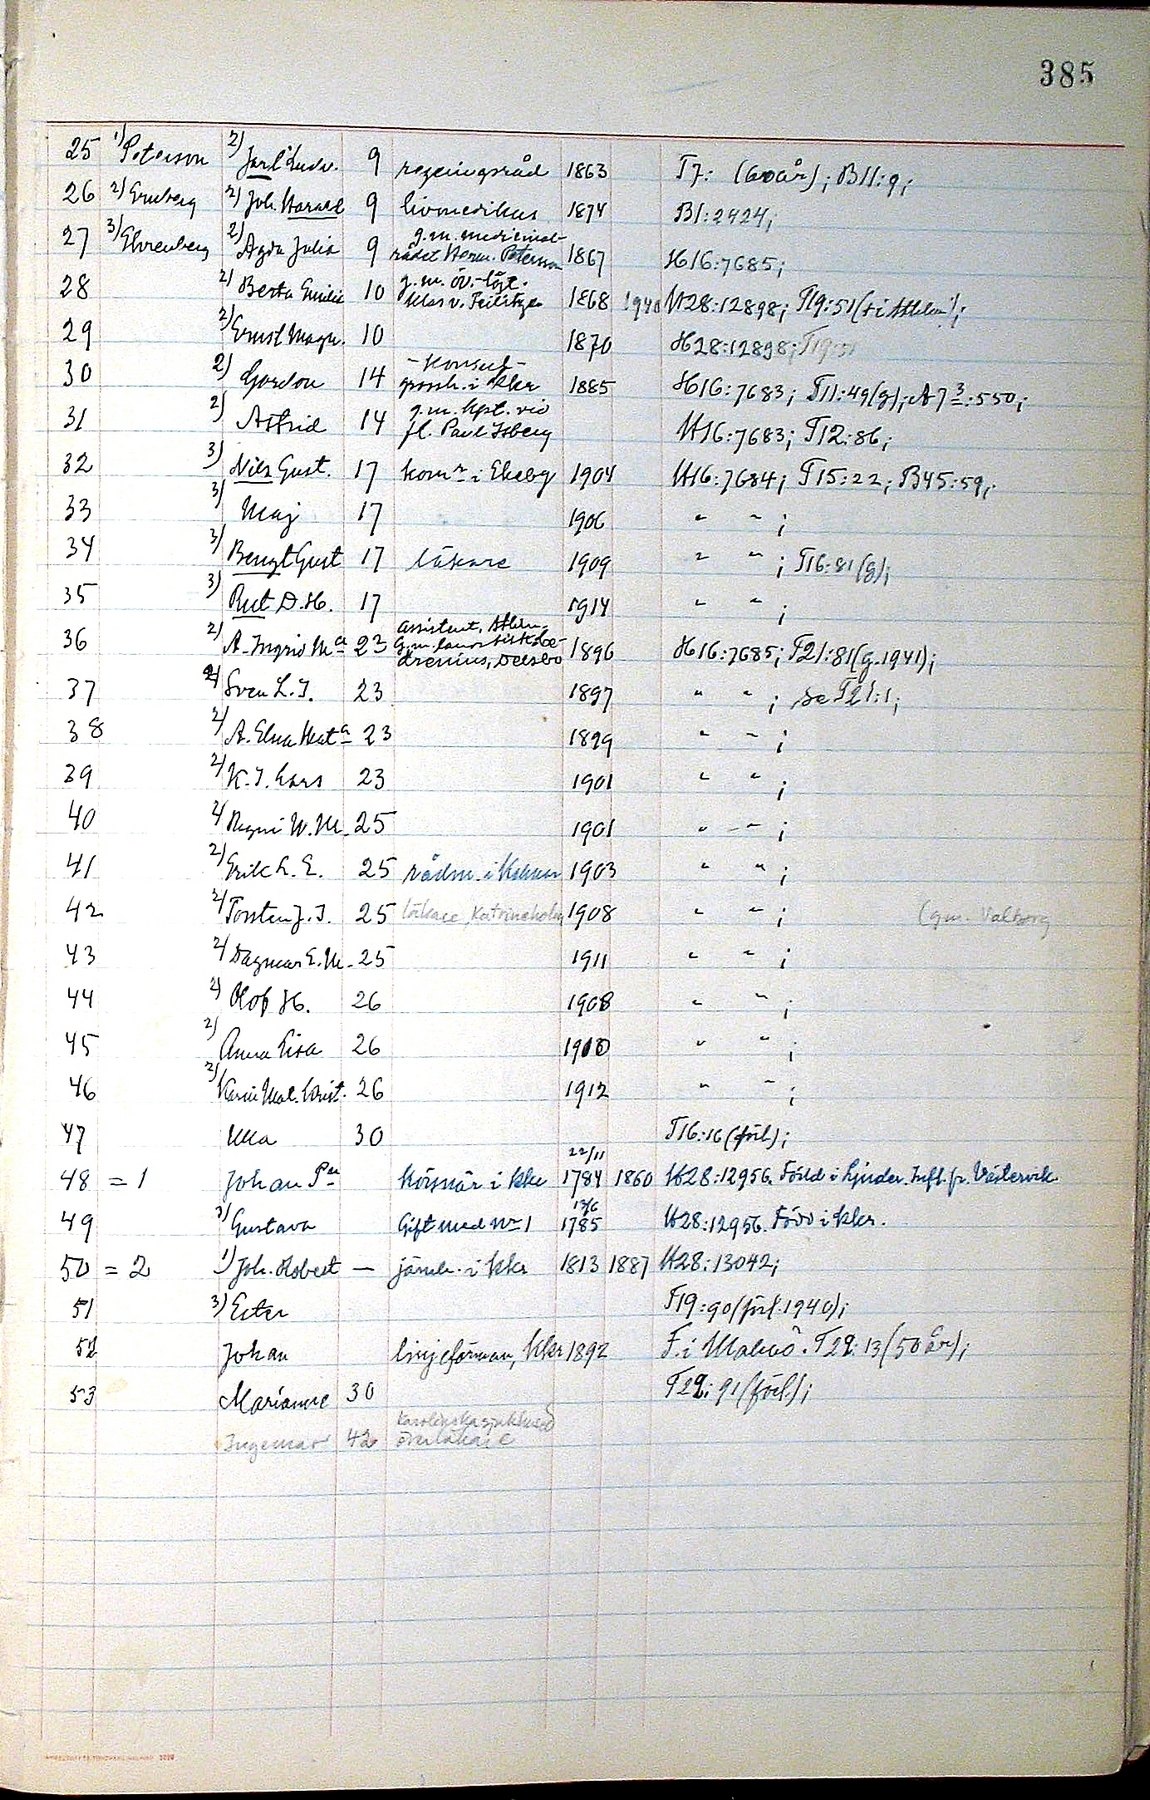 385
25 1) Peterson 2) Jarl Ludv. 9 regeringsråd 1863 T7: (60 år); B11:9;
26 2) Ernberg 2) Joh. Harald 9 livmedikus 1874 B1:2424;
27 3) Ehrenberg 2) Agda Julia 9 g.m. medicinal-
rådet Herm. Peterson 1867 H16:7685;
28 2) Berta Emilia 10 g.m. öv.-löjt.
Klas v. Feilitzen 1868 1940 H28:12898; T19:51 († i Sthlm);
29 2) Ernst Magn. 10 1870 H28:12898; T19:51
30 2) Gordon 14 - Konsul -
grossh. i Kkr 1885 H16:7683; T11:49(g); A7 3:550;
31 2) Astrid 14 g.m. kpt. vid
fl. Paul Isberg H16:7683; T12:86;
32 3) Nils Gust. 17 komr i Ekeby 1904 H16:7684; T15:22; B45:59;
33 3) Maj 17 1906 " " ;
34 3) Bengt Gust 17 läkare 1909 " " ; T16:81(g);
35 3) Rut D.H. 17 1914 " " ;
36 2) A. Ingrid Ma 23 assistent, Sthlm.
G.m.
Delsbo 1896 H16:7685; T21:81(g. 1941);
37 2) Sven L.J. 23 1897 " " ; se T21:1;
38 2) A. Elna 23 1899 " " ;
39 2) K.J. Lars 23 1901 " " ;
40 2) Ragni W.M. 25 1901 " " ;
41 2) Erik L.E. 25 rådm. i 1903 " " ;
42 2) Torsten J.J. 25 läkare, Katrineholm 1908 " " ; (gm. Valborg
43 2) Dagmar E.M. 25 1911 " " ;
44 2) Olof H. 26 1908 " " ;
45 2) Anna Lisa 26 1910 " " ;
46 2) Karin Mal. Krist. 26 1912 " " ;
47 Ulla 30 T16:16 (förl);
48 = 1 Johan Pn körsnär i Kkr 22/11
1784 1860 H28:12956. Född i Hjinder. Infl. fr. Västervik.
49 3) Gustava Gift med Nr 1 13/6
1785 H28:12956. Född i Kkr.
50 = 2 1) Joh. Robert — järnh. i Kkr 1813 1887 H28:13042;
51 3) Ester T19:90 (förl. 1940);
52 Johan linjeförman, Kkr 1892 F. i Malmö. T22:13 (50 år);
53 Marianne 30 T22:91 (förl);
Ingemar 42 Karolinska sjukhuset
överläkare